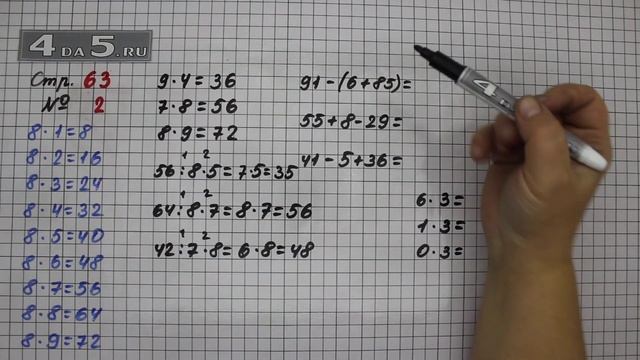 4 DA 5.RU
Стр. 63
№ 2
8·1=8
8·2=16
8·3=24
8·4=32
8·5=40
8·6=48
8·7=56
8·8=64
8·9=72
9·4=36
7·8=56
8·9=72
1 2
56:8·5=7·5=35
1 2
64:8·7=8·7=56
1 2
42:7·8=6·8=48
91-(6+85)=
55+8-29=
41-5+36=
6·3=
1·3=
0·3=
4